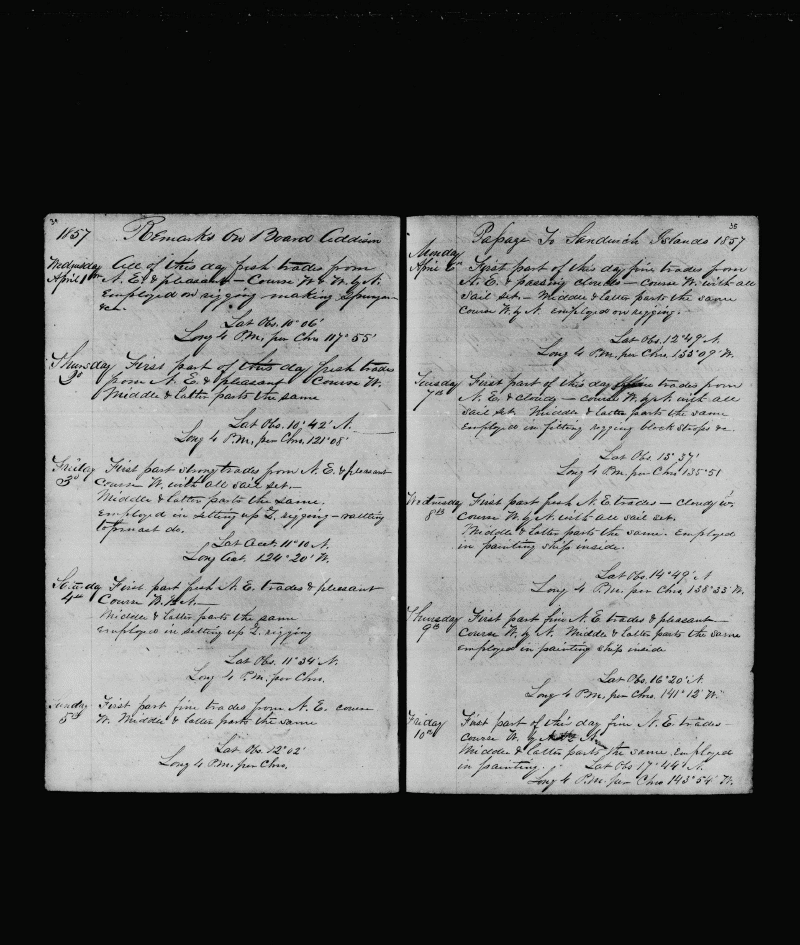 34
1857 Remarks On Board Addison
Wednesday All of this day fresh trades from
April 1st N. E. & pleasant — Course W. & W. by N.
Employed on rigging making Spunyarn
&c.
Lat Obs. 10° 06'
Long 4 P.M. per Chro 117° 55'
Thursday First part of this day fresh trades
2d from N. E. & pleasant Course W.
Middle & latter parts the same
Lat Obs. 10° 42' N.
Long 4 P.M. per Chro. 121° 08'
Friday First part strong trades from N. E. & pleasant
3d Course W. with all sail set. —
Middle & latter parts the same.
Employed in setting up L. rigging — rattling
foremast do.
Lat Act. 11° 10 N.
Long Act. 124° 20' W.
Saturday First part fresh N. E. trades & pleasant
4th Course W. N. —
Middle & latter parts the same
Employed in setting up L. rigging
Lat Obs. 11° 34' N.
Long 4 P.M. per Chro.
Sunday First part fine trades from N. E. course
5th W. Middle & latter parts the same
Lat Obs. 12° 02'
Long 4 P.M. per Chro.
35
Passage To Sandwich Islands 1857
Monday First part of this day fine trades from
April 6th N. E. & passing clouds — course W. with all
sail set. — Middle & latter parts the same
Course W. by N. employed on rigging.
Lat Obs. 12° 49' N.
Long 4 P.M. per Chro. 133° 09' W.
Tuesday First part of this day fine trades from
7th N. E. & cloudy — course W. by N. with all
sail set. Middle & latter parts the same
employed in fitting rigging block straps &c.
Lat Obs. 13° 37'
Long 4 P.M. per Chro 135° 51
Wednesday First part fresh N. E. trades — cloudy w.
8th Course W. by N. with all sail set.
Middle & latter parts the same. Employed
in painting ship inside.
Lat Obs. 14° 49' N
Long 4 P.M. per Chro. 138° 33' W.
Thursday First part fine N. E. trades & pleasant —
9th Course W. by N. Middle & latter parts the same
employed in painting ship inside
Lat Obs. 16° 20' N.
Long 4 P.M. per Chro. 141° 12' W.
Friday First part of this day fine N. E. trades —
10th course W. by N.
Middle & latter parts the same. Employed
in painting. Lat Obs 17° 44' N.
Long 4 P.M. per Chro 143° 54' W.